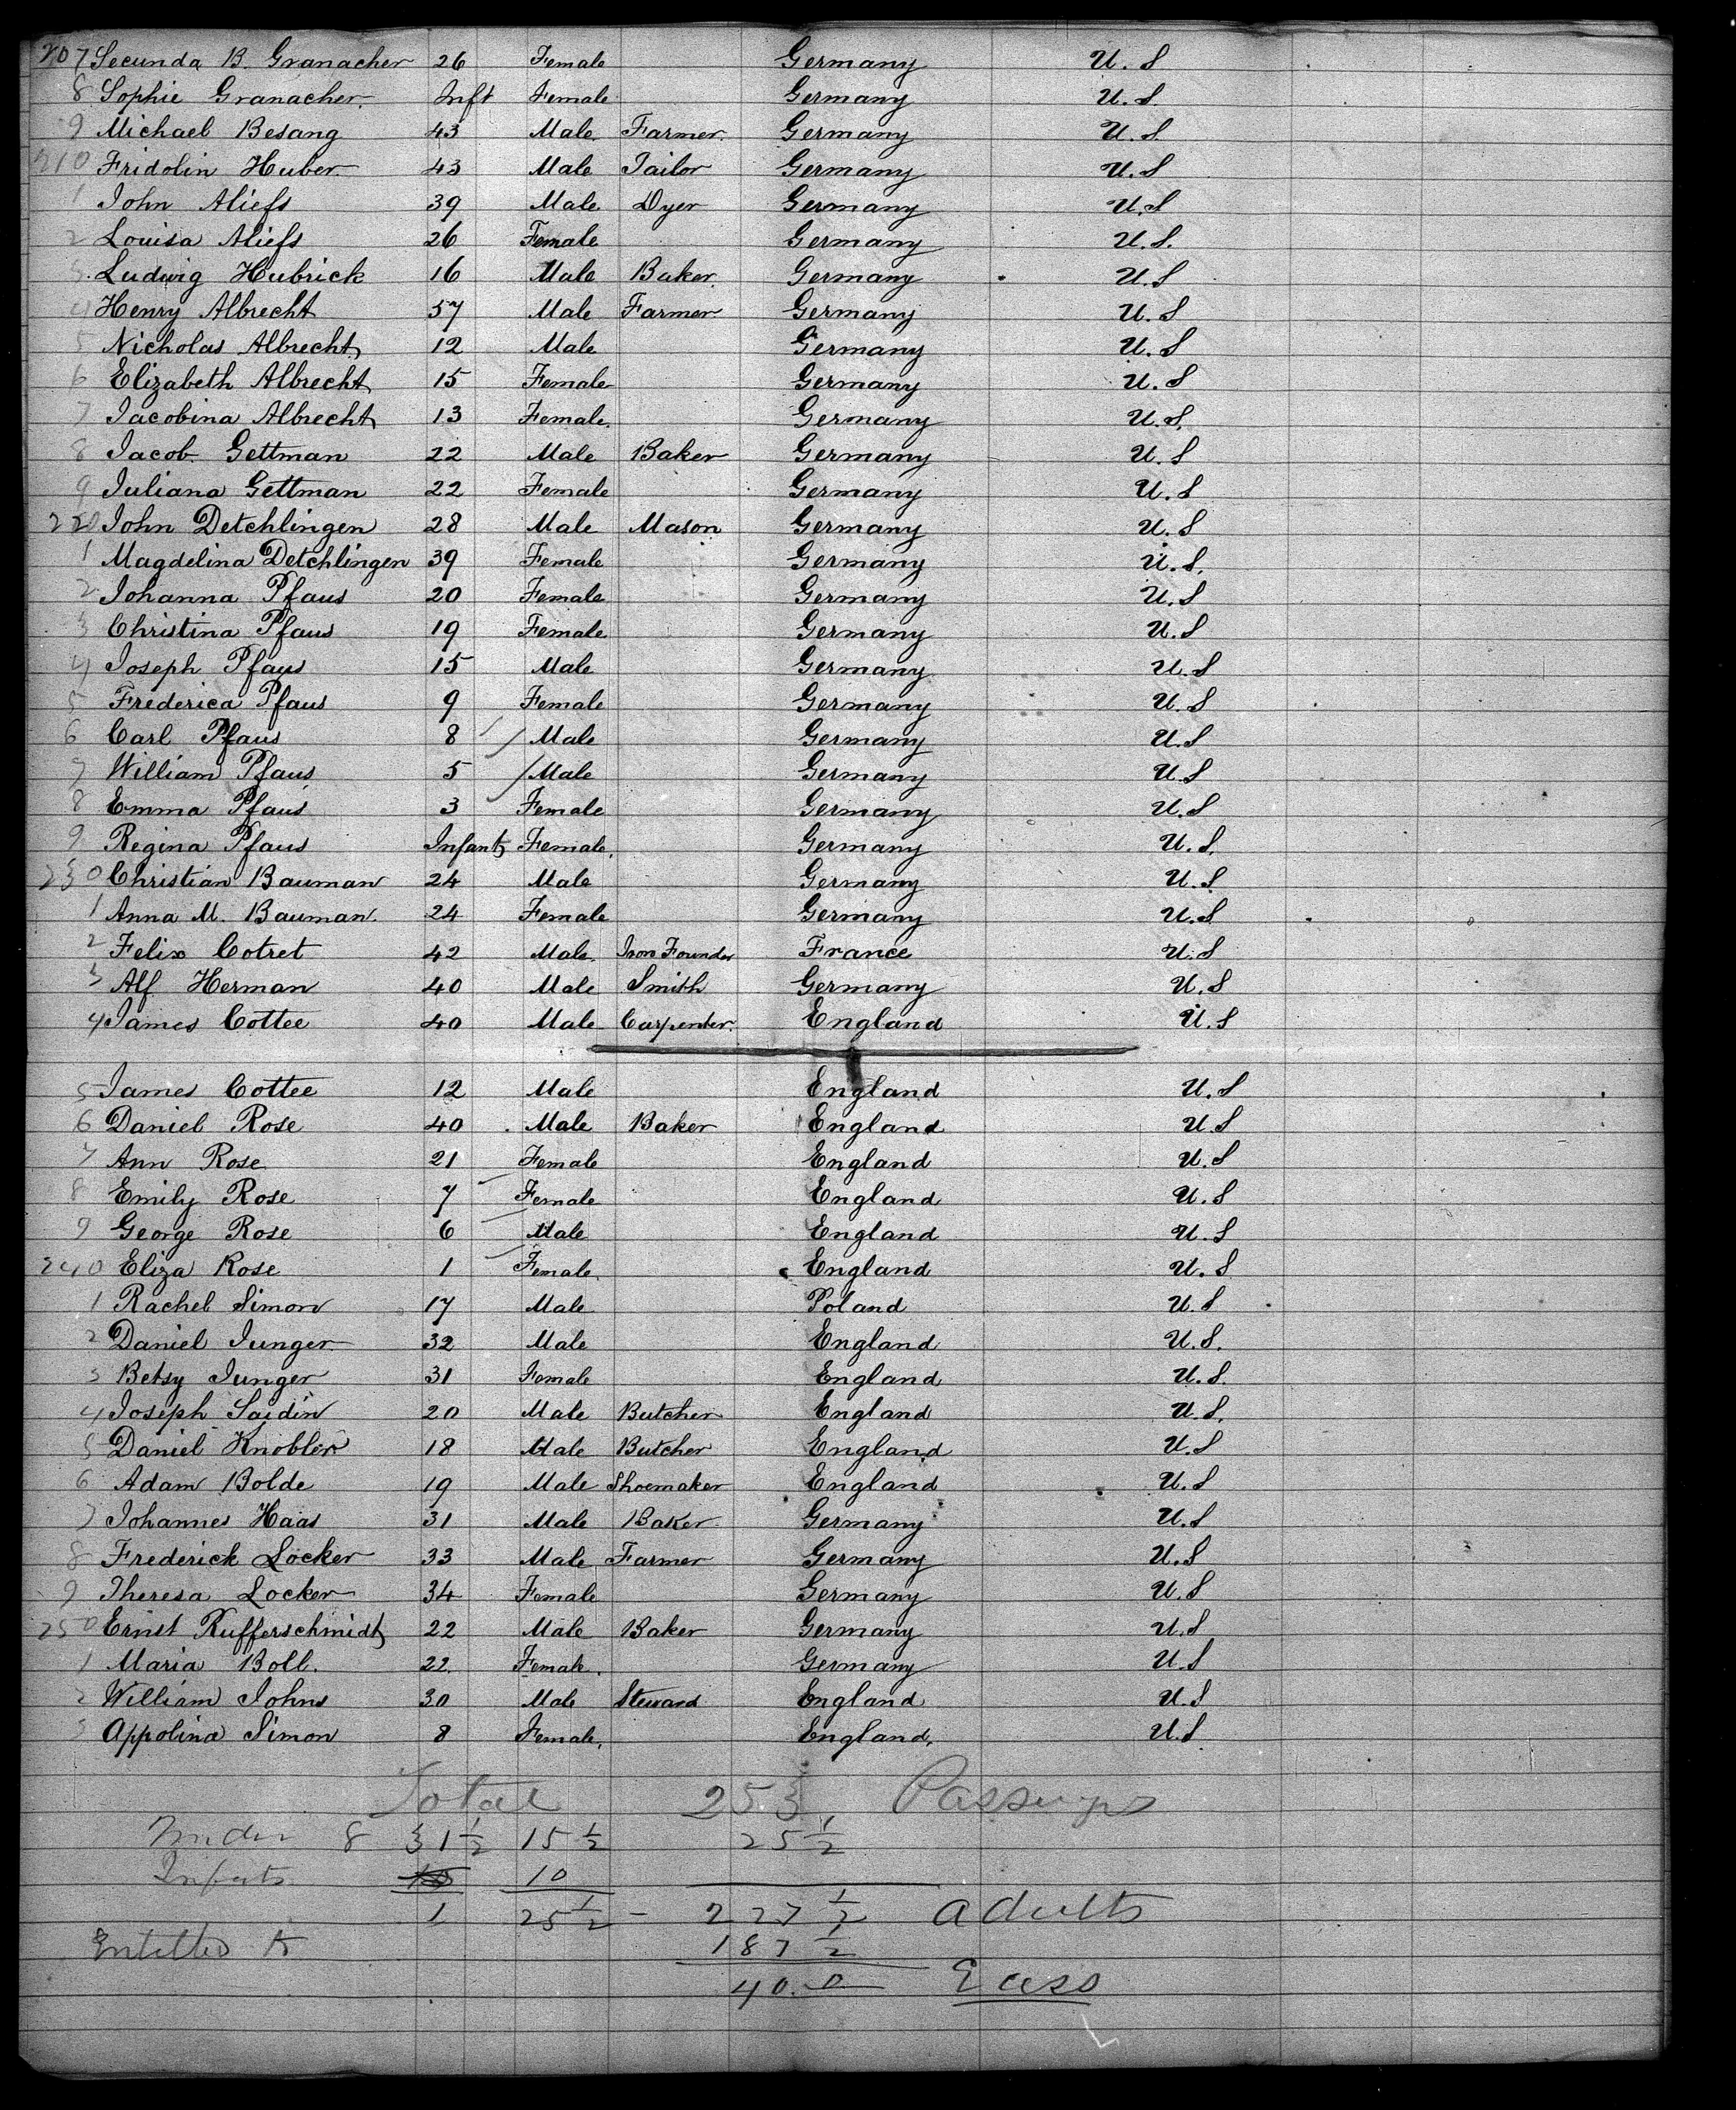 207 Secunda B. Granacher 26 Female Germany U.S
8 Sophie Granacher. Inft Female Germany U.S.
9 Michael Besang 43 Male. Farmer. Germany U.S.
210 Fridolin Huber 43 Male Tailor Germany U.S
1 John Aliefs 39 Male Dyer Germany U.S
2 Louisa Aliefs 26 Female Germany U.S.
3. Ludwig Hubrick 16 Male Baker. Germany U.S
4 Henry Albrecht 57 Male Farmer. Germany U.S
5 Nicholas Albrecht 12 Male Germany U.S
6 Elizabeth Albrecht 15 Female Germany U.S
7 Jacobina Albrecht 13 Female. Germany U.S.
8 Jacob Gettman 22 Male Baker Germany U.S
9 Juliana Gettman 22 Female Germany U.S
220 John Detchlingen 28 Male Mason Germany U.S
1 Magdelina Detchlingen 39 Female Germany U.S.
2 Johanna Pfaus 20 Female Germany U.S
3 Christina Pfaus 19 Female Germany U.S
4 Joseph Pfaus 15 Male Germany U.S
5 Frederica Pfaus 9 Female Germany U.S
6 Carl Pfaus 8 Male Germany U.S
7 William Pfaus 5 Male Germany U.S
8 Emma Pfaus 3 Female Germany U.S
9 Regina Pfaus Infant Female. Germany U.S.
230 Christian Bauman 24 Male Germany U.S
1 Anna M. Bauman. 24 Female Germany U.S
2 Felix Cotret 42 Male. Iron Founder France U.S
3 Alf Herman 40 Male Smith Germany U.S
4 James Cottee 40 Male Carpenter. England U.S
5 James Cottee 12 Male England U.S
6 Daniel Rose 40 Male Baker England U.S
7 Ann Rose 21 Female England U.S
8 Emily Rose 7 Female England U.S
9 George Rose 6 Male England U.S
240 Eliza Rose 1 Female. England U.S
1 Rachel Simon 17 Male Poland U.S
2 Daniel Junger 32 Male England U.S.
3 Betsy Junger 31 Female England U.S.
4 Joseph 20 Male Butcher England U.S.
5 Daniel Knobler 18 Male Butcher England U.S
6 Adam Bolde 19 Male Shoemaker England U.S
7 Johannes Haas 31 Male Baker Germany U.S
8 Frederick Locker 33 Male Farmer Germany U.S
9 Theresa Locker 34 Female Germany U.S
250 Ernst Kufferschmidt 22 Male Baker Germany U.S
1 Maria Boll. 22. Female. Germany U.S
2 William Johns 30 Male Steward England U.S
3 Appolina Simon 8 Female. England. U.S
Total 253 Passengrs
Under 8 31 1/2 15 1/2 25 1/2
Infants 10 10
1 25 1/2 - 227 1/2 adults
Entitled to 187 1/2
40.0